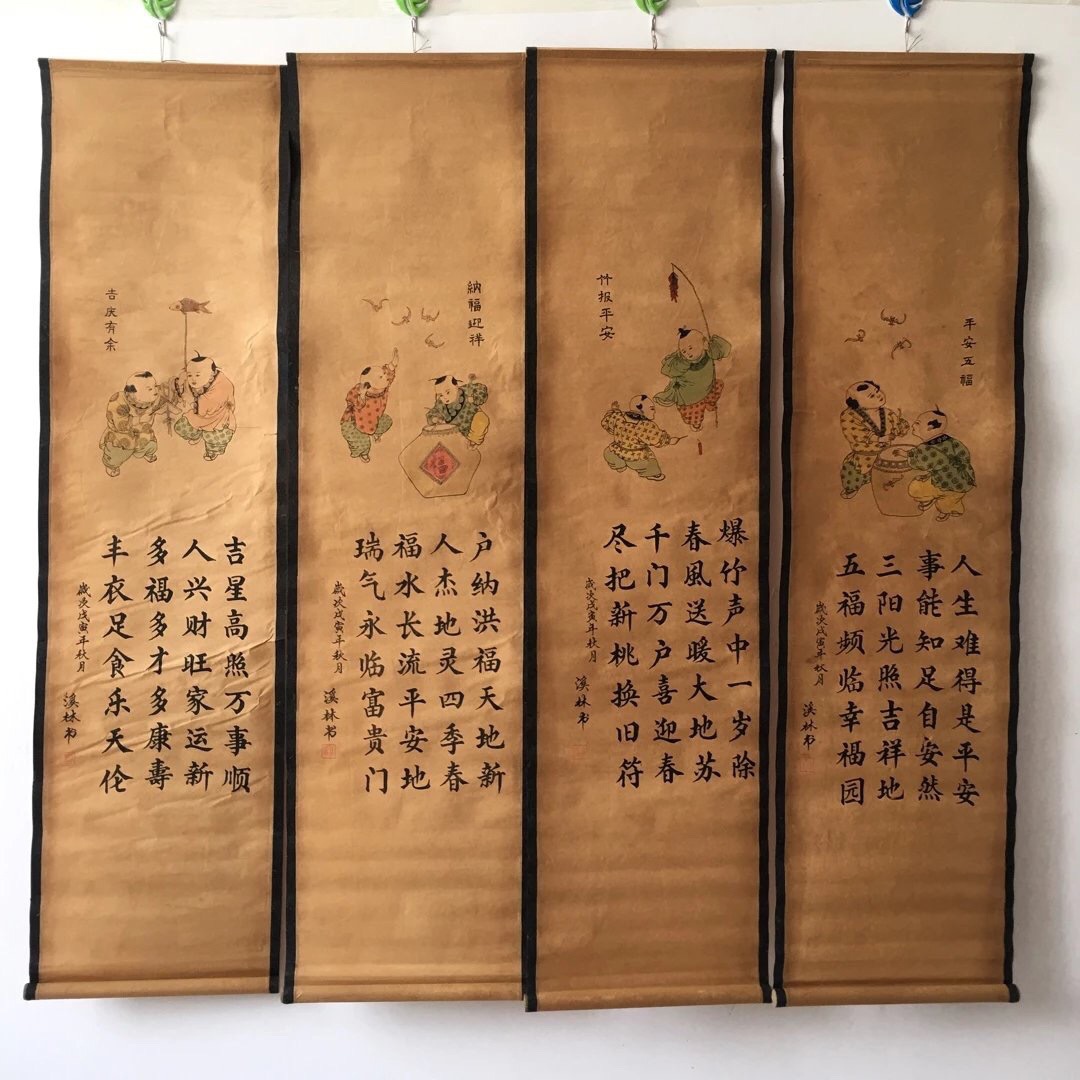 平安五福
人生难得是平安
事能知足自安然
三阳光照吉祥地
五福频临幸福园
歲次戊寅年秋月
溪林书
竹报平安
爆竹声中一岁除
春風送暖大地苏
千门万户喜迎春
尽把新桃换旧符
歲次戊寅年秋月
溪林书
納福迎祥
福
户纳洪福天地新
人杰地灵四季春
福水长流平安地
瑞气永临富贵门
歲次戊寅年秋月
溪林书
吉庆有余
吉星高照万事顺
人兴财旺家运新
多福多才多康壽
丰衣足食乐天伦
歲次戊寅年秋月
溪林书